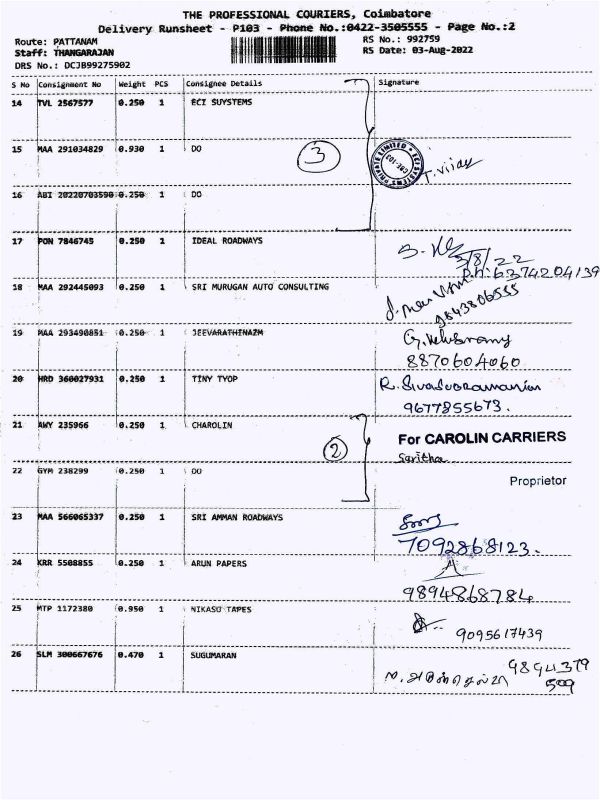 THE PROFESSIONAL COURIERS, Coimbatore
Delivery Runsheet - P103 - Phone No.:0422-3505555 - Page No.:2
Route: PATTANAM
RS No.: 992759
Staff: THANGARAJAN
RS Date: 03-Aug-2022
DRS No.: DCJB99275902
S No Consignment No Weight PCS Consignee Details Signature
14 TVL 2567577 0.250 1 ECI SUYSTEMS
15 MAA 291034829 0.930 1 DO
3
T. Vijay
16 ABI 20220703590 0.250 1 DO
17 PON 7846745 0.250 1 IDEAL ROADWAYS
3/8/22
ph: 6374204139
18 MAA 292445093 0.250 1 SRI MURUGAN AUTO CONSULTING
9843806555
19 MAA 293490851 0.250 1 JEEVARATHINAZM
8870604060
20 HRD 360027931 0.250 1 TINY TYOP
R. Sivasubramanian
9677855673.
21 AWY 235966 0.250 1 CHAROLIN
For CAROLIN CARRIERS
Saritha
2
22 GYM 238299 0.250 1 DO
Proprietor
23 MAA 566065337 0.250 1 SRI AMMAN ROADWAYS
7092868123.
24 KRR 5508855 0.250 1 ARUN PAPERS
9894868784
25 MTP 1172380 0.950 1 NIKASU TAPES
9095617439
26 SLM 300667676 0.470 1 SUGUMARAN
9894379
509